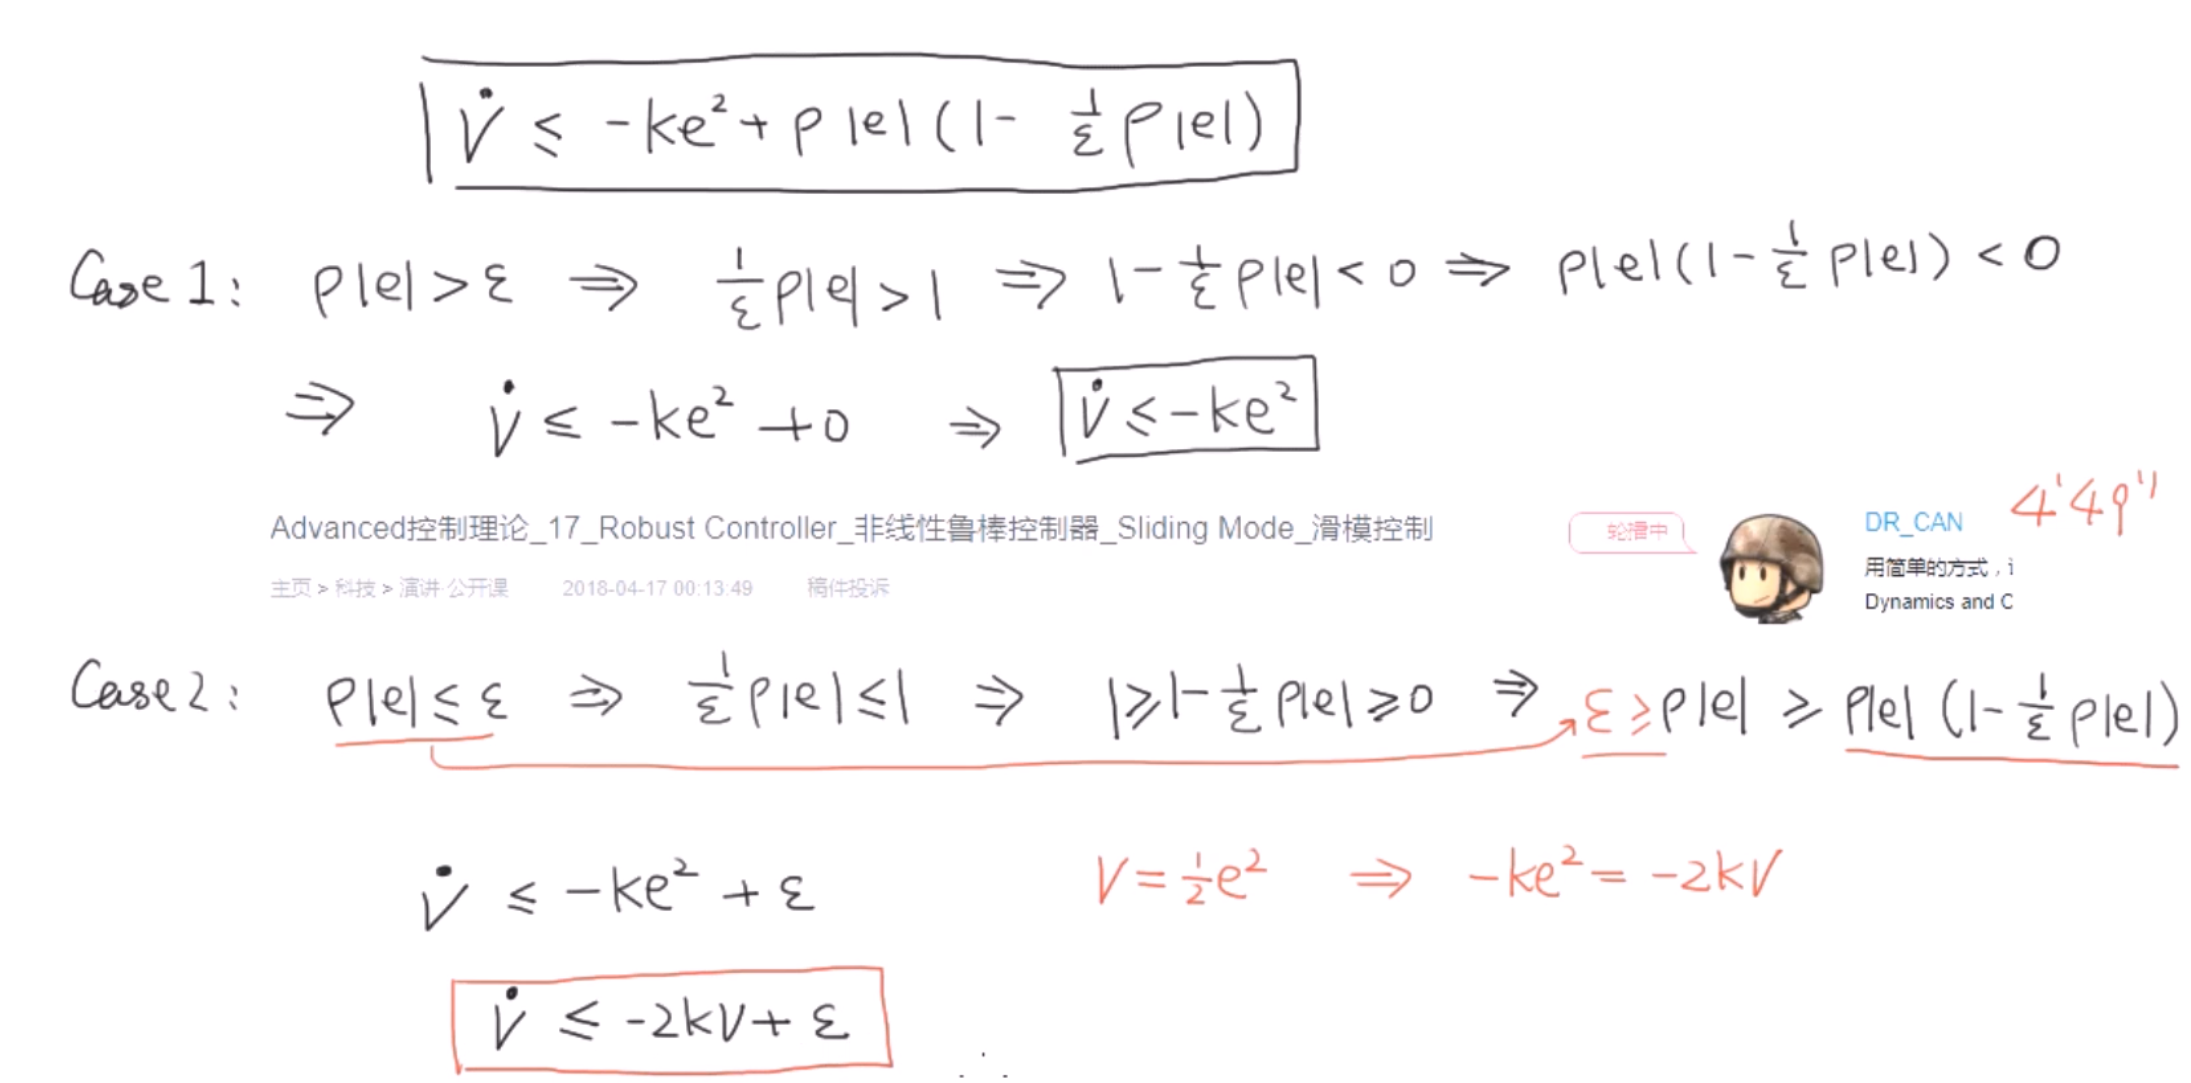 V̇ ≤ -ke² + ρ|e|(1- 1/ε ρ|e|)
Case 1: ρ|e|>ε ⇒ 1/ε ρ|e|>1 ⇒ 1- 1/ε ρ|e|<0 ⇒ ρ|e|(1- 1/ε ρ|e|) < 0
⇒ V̇ ≤ -ke² +0 ⇒ V̇ ≤ -ke²
4'49"
Advanced控制理论_17_Robust Controller_非线性鲁棒控制器_Sliding Mode_滑模控制
轮播中
DR_CAN
主页 > 科技 > 演讲·公开课 2018-04-17 00:13:49 稿件投诉
用简单的方式，
Dynamics and C
Case 2: ρ|e|≤ε ⇒ 1/ε ρ|e|≤1 ⇒ 1≥1- 1/ε ρ|e|≥0 ⇒ ε≥ρ|e| ≥ ρ|e|(1- 1/ε ρ|e|)
V̇ ≤ -ke² + ε V = 1/2 e² ⇒ -ke² = -2kV
V̇ ≤ -2kV + ε